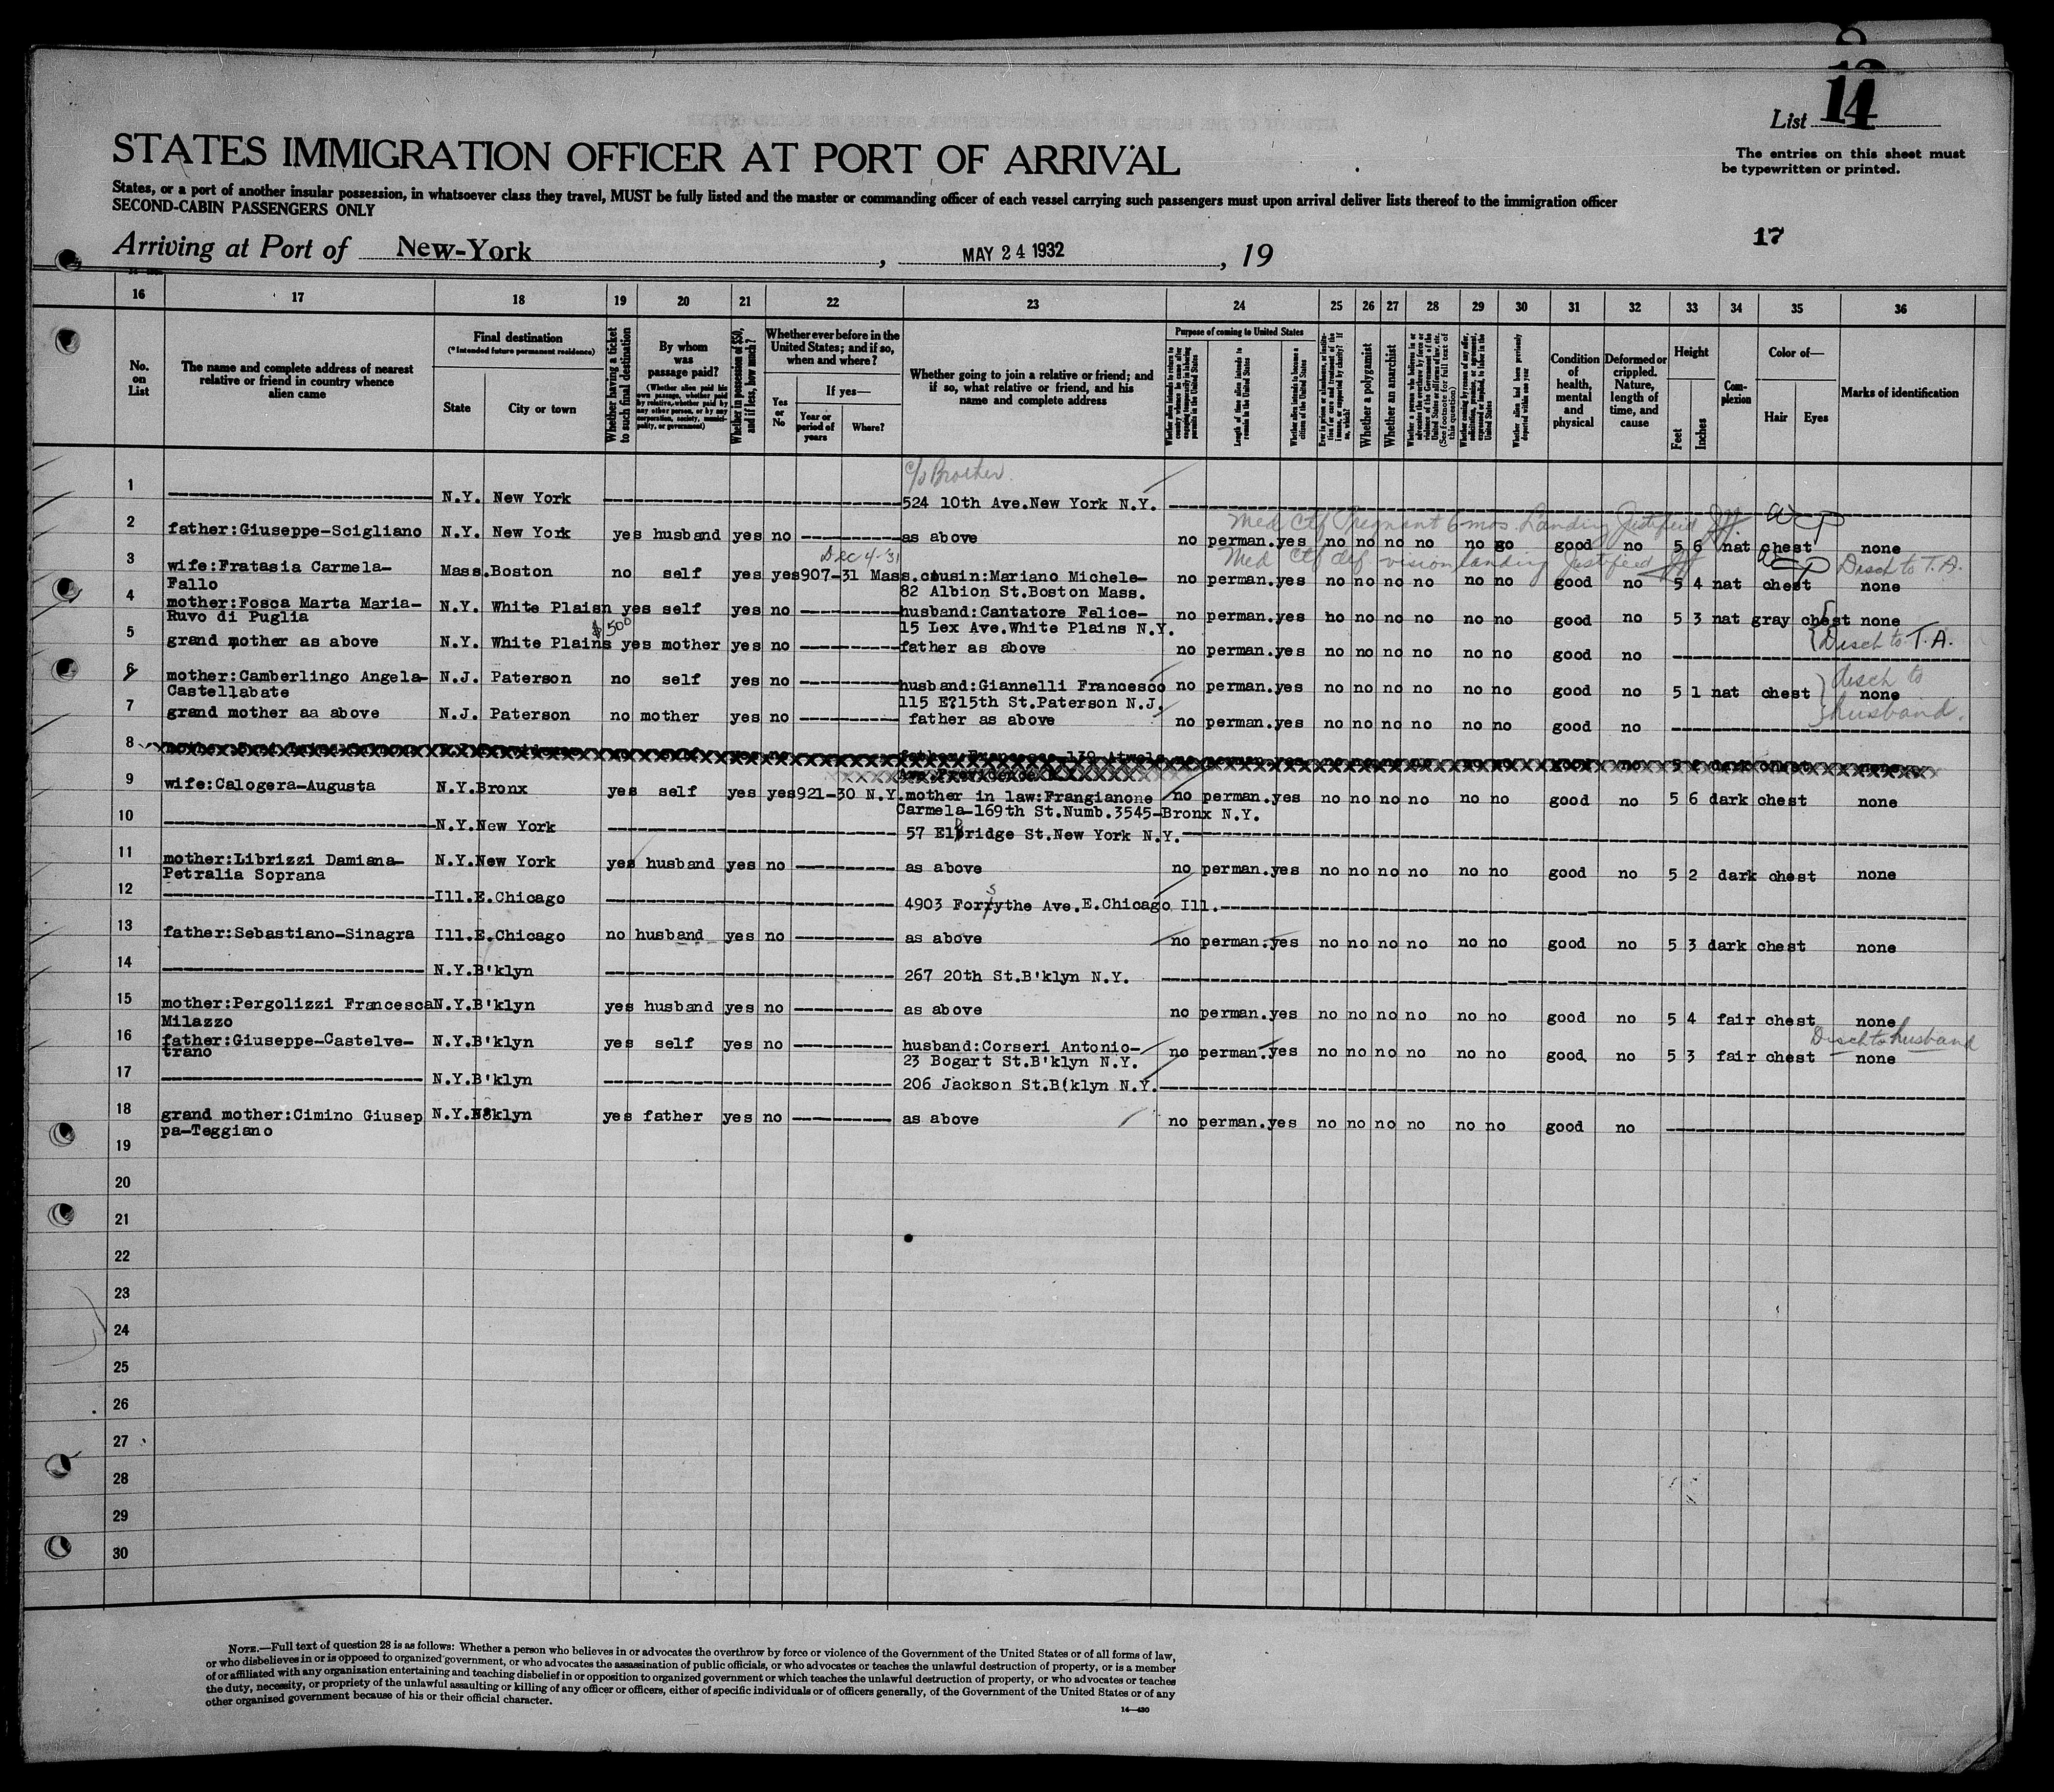 List 14
The entries on this sheet must
be typewritten or printed.
STATES IMMIGRATION OFFICER AT PORT OF ARRIVAL
States, or a port of another insular possession, in whatsoever class they travel, MUST be fully listed and the master or commanding officer of each vessel carrying such passengers must upon arrival deliver lists thereof to the immigration officer
SECOND-CABIN PASSENGERS ONLY
17
Arriving at Port of New-York, MAY 24 1932, 19
16 17 18 19 20 21 22 23 24 25 26 27 28 29 30 31 32 33 34 35 36
No. on List
The name and complete address of nearest relative or friend in country whence alien came
Final destination
(*Intended future permanent residence)
State
City or town
Whether having a ticket to such final destination
By whom was passage paid?
(Whether alien paid his own passage, whether paid by relative, whether paid by any other person, or by any corporation, society, municipality, or government)
Whether in possession of $50, and if less, how much?
Whether ever before in the United States; and if so, when and where?
Yes or No
If yes—
Year or period of years
Where?
Whether going to join a relative or friend; and if so, what relative or friend, and his name and complete address
Purpose of coming to United States
Length of time alien intends to remain in the United States
Whether alien intends to become a citizen of the United States
Whether a polygamist
Whether an anarchist
Whether alien had been previously deported within one year
Condition of health, mental and physical
Deformed or crippled. Nature, length of time, and cause
Height
Feet
Inches
Complexion
Color of—
Hair
Eyes
Marks of identification
c/o Brother
1 N.Y. New York 524 10th Ave.New York N.Y.
Med Ctf Pregnant 6 mos. Landing Justified
2 father:Giuseppe-Scigliano N.Y. New York yes husband yes no as above no perman.yes no no no no no go good no 5 6 nat chest none
Dec 4-'31
Med Ctf def. vision landing Justified Disch to T.A.
3 wife:Fratasia Carmela- Mass.Boston no self yes yes907-31 Mass.cousin:Mariano Michele- no perman.yes no no no no no no good no 5 4 nat chest none
Fallo 82 Albion St.Boston Mass.
4 mother:Fosca Marta Maria- N.Y. White Plaisn yes self yes no husband:Cantatore Felice- no perman.yes no no no no no no good no 5 3 nat gray chest none
Ruvo di Puglia 15 Lex Ave.White Plains N.Y.
$500
5 grand mother as above N.Y. White Plains yes mother yes no father as above no perman.yes no no no no no no good no Disch to T.A.
6 mother:Camberlingo Angela- N.J. Paterson no self yes no husband:Giannelli Francesco no perman.yes no no no no no no good no 5 1 nat chest none
Castellabate 115 E?15th St.Paterson N.J. disch to husband.
7 grand mother aa above N.J. Paterson no mother yes no father as above no perman.yes no no no no no no good no
8
9 wife:Calogera-Augusta N.Y.Bronx yes self yes yes921-30 N.Y.mother in law:Frangianone no perman.yes no no no no no no good no 5 6 dark chest none
Carmela-169th St.Numb.3545-Bronx N.Y.
10 N.Y.New York 57 Eldridge St.New York N.Y.
11 mother:Librizzi Damiana- N.Y.New York yes husband yes no as above no perman.yes no no no no no no good no 5 2 dark chest none
Petralia Soprana
12 Ill.E.Chicago 4903 Forsythe Ave.E.Chicago Ill.
13 father:Sebastiano-Sinagra Ill.E.Chicago no husband yes no as above no perman.yes no no no no no no good no 5 3 dark chest none
14 N.Y.B'klyn 267 20th St.B'klyn N.Y.
15 mother:Pergolizzi Francesca N.Y.B'klyn yes husband yes no as above no perman.yes no no no no no no good no 5 4 fair chest none
Milazzo
Disch to husband
16 father:Giuseppe-Castelve- N.Y.B'klyn yes self yes no husband:Corseri Antonio- no perman.yes no no no no no no good no 5 3 fair chest none
trano 23 Bogart St.B'klyn N.Y.
17 N.Y.B'klyn 206 Jackson St.B(klyn N.Y.
18 grand mother:Cimino Giusep N.Y.B'klyn yes father yes no as above no perman.yes no no no no no no good no
pa-Teggiano
19
20
21
22
23
24
25
26
27
28
29
30
NOTE.—Full text of question 28 is as follows: Whether a person who believes in or advocates the overthrow by force or violence of the Government of the United States or of all forms of law,
or who disbelieves in or is opposed to organized government, or who advocates the assassination of public officials, or who advocates or teaches the unlawful destruction of property, or is a member
of or affiliated with any organization entertaining and teaching disbelief in or opposition to organized government or which teaches the unlawful destruction of property, or who advocates or teaches
the duty, necessity, or propriety of the unlawful assaulting or killing of any officer or officers, either of specific individuals or of officers generally, of the Government of the United States or of any
other organized government because of his or their official character.
14—430